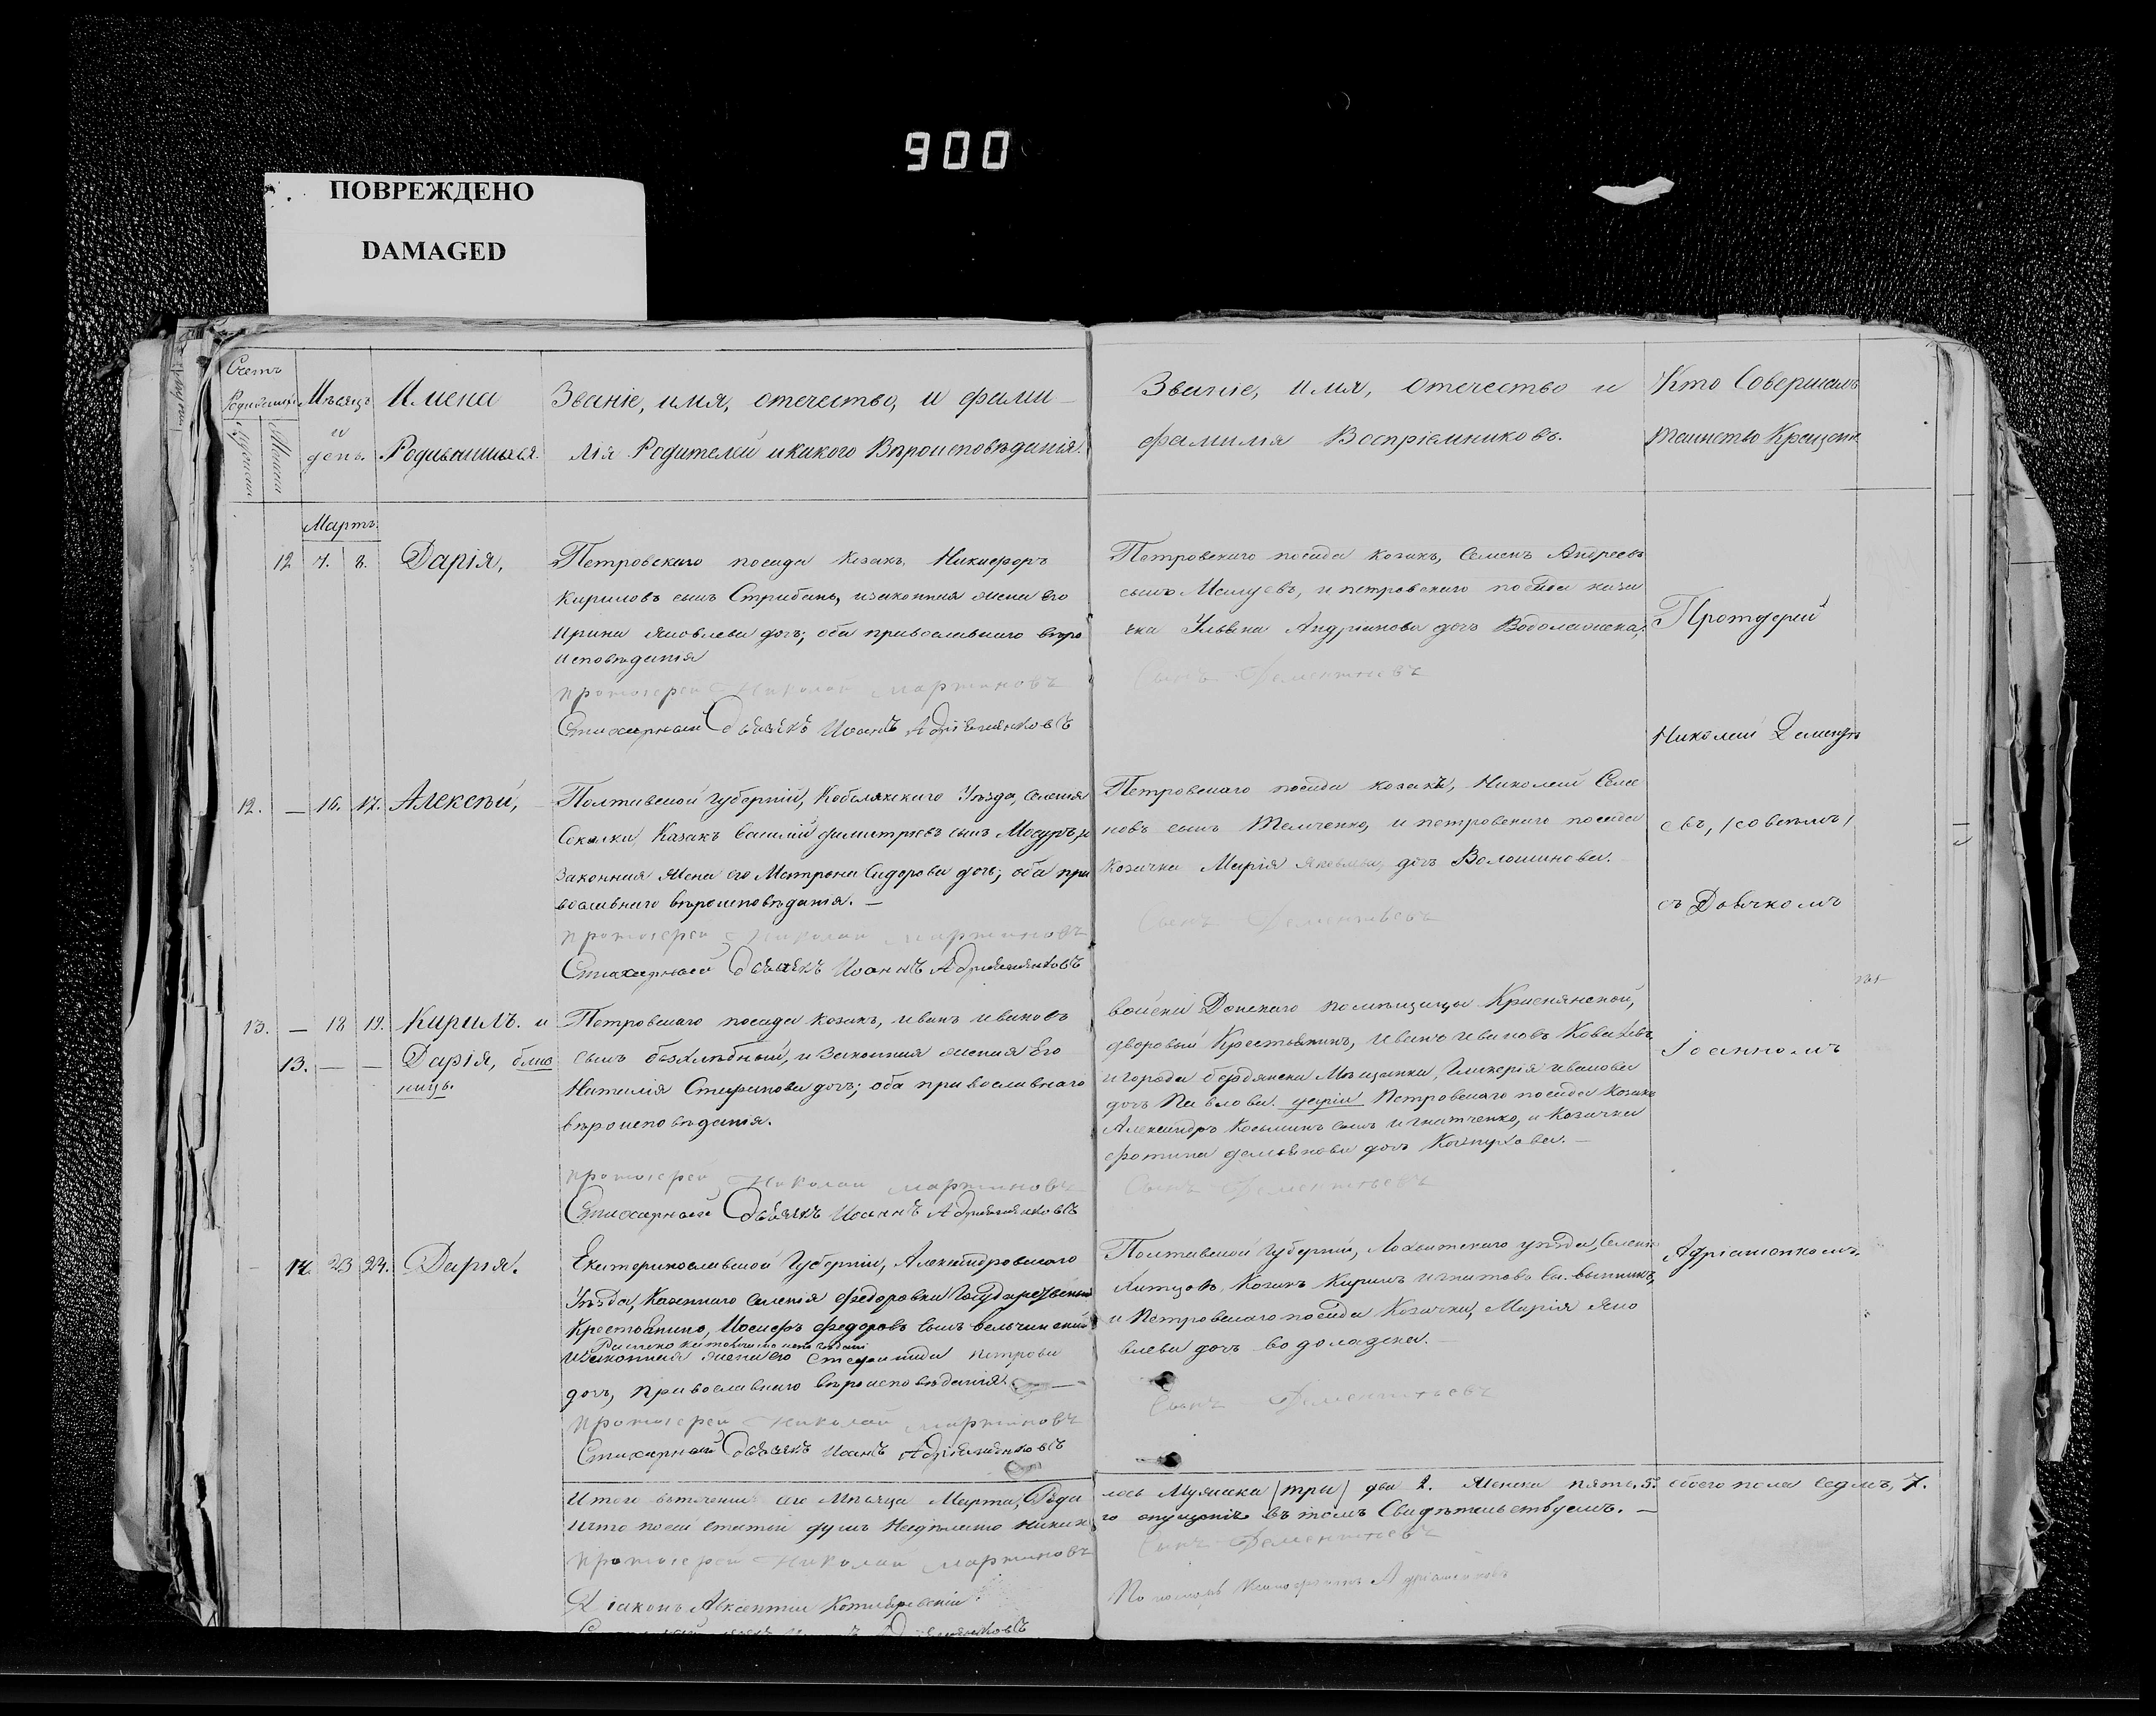 900
ПОВРЕЖДЕНО
DAMAGED
Счетъ
Родившихся
Мѣсяцъ
и
день.
Имена
Родившихся.
Званіе, имя, отечество, и фами
лія Родителей и какого Вѣроисповѣданія.
Званіе, имя, отечество и
фамилія Воспріемниковъ.
Кто Совершалъ
таинство Крещенія
Мартъ.
12 7. 8. Дарія,
Петровскаго посада козакъ Никифоръ
Кириловъ сынъ Стрибань, изаконная жена его
Ирина Яковлева дочь; оба православнаго вѣро
исповѣданія
протоіерей Николай Мартиновъ
Стихарный Дьячекъ Иоаннъ Адріяшенковъ
Петровскаго посада козакъ, Семенъ Андреевъ
сынъ и петровскаго посада каза
чка Ульяна Андріянова дочь Водолажска,
Сынъ Дементьевъ
Протоіерей
Николай Дементь
евъ,
съ Дьячкомъ
Іоанномъ
Адріашенкомъ.
12. — 16. 17. Алексѣй,
Полтавской губерніи, Кобелякского Уѣзда, селенія
Соколки, Казакъ Василій Димитріевъ сынъ Мосуръ, и
Законная жена его Матрона Сидорова дочь; оба пра
вославнаго вѣроисповѣданія. —
протоіерей Николай Мартиновъ
Стихарный Дьячекъ Иоаннъ Адріяшенковъ
Петровскаго посада козакъ, Николай Семе
новъ сынъ Темченко, и петровскаго посада
козачка Марія Яковлева, дочь Волошинова.
Сынъ Дементьевъ
13. — 18 19. Кирилъ. и
13. — — Дарія, близ
ницы.
Петровскаго посада козакъ, иванъ ивановъ
сынъ безхлѣбный, и законная женая Его
Наталія Стефанова дочь; оба православнаго
вѣроисповѣданія.
протоіерей Николай Мартиновъ
Стихарный Дьячекъ Иоаннъ Адріяшенковъ
войска Донскаго помѣщицы Краснянской,
дворовый Крестьянинъ, иванъ ивановъ Ковалевъ
и города бердянска Мѣщанка, Гликерія иванова
дочь Павлова. Дарія Петровскаго посада Козакъ
Александръ Козьминъ сынъ игнатченко, и Козачка
фотина демьянова дочь
Сынъ Дементьевъ
14. 23 24. Дарія.
Екатеринославской Губерніи, Александровскаго
Уѣзда, Казеннаго селенія Федоровки Государственный
Крестьянинъ, Иосифъ Федоровъ сынъ
изаконная жена его Стефанида петрова
дочь, православнаго вѣроисповѣданія.
протоіерей Николай Мартиновъ
Стихарный Дьячекъ Иоаннъ Адріяшенковъ
Полтавской губерніи, Лохвитскаго уѣзда, селенія
Козакъ Кирилъ игнатовъ
и Петровскаго посада Козачка, Марія Яко
влева дочь водолазска.
Сынъ Дементьевъ
Итого втеченіи сего Мѣсяца Марта, Роди
лось Мужеска /три/ два 2. Женска пять. 5. обоего пола седмь, 7.
Что посей статьи душъ Несдѣлано никак
го опущенія въ томъ Свидѣтельствуемъ. —
протоіерей Николай Мартиновъ
Сынъ Дементьевъ
Діаконъ Авксентій
Пономарь Адріашенковъ